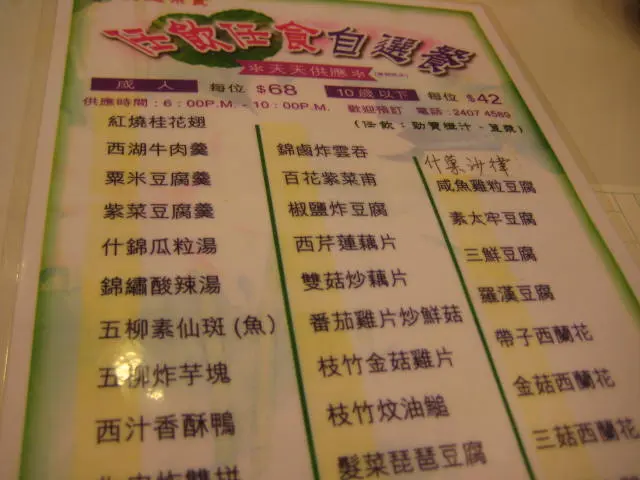 任飲任食自選餐
※天天供應※
成人 每位 $68 10歲以下 每位 $42
供應時間：6：00P.M. - 10：00P.M. 歡迎預訂 電話：2407 4589
(任飲：勁寶橙汁、豆漿)
紅燒桂花翅
西湖牛肉羹
粟米豆腐羹
紫菜豆腐羹
什錦瓜粒湯
錦繡酸辣湯
五柳素仙斑(魚)
五柳炸芋塊
西汁香酥鴨
錦鹵炸雲吞
百花紫菜甫
椒鹽炸豆腐
西芹蓮藕片
雙菇炒藕片
番茄雞片炒鮮菇
枝竹金菇雞片
枝竹炆油鎚
髮菜琵琶豆腐
什菓沙律
咸魚雞粒豆腐
素太牢豆腐
三鮮豆腐
羅漢豆腐
帶子西蘭花
金菇西蘭花
三菇西蘭花